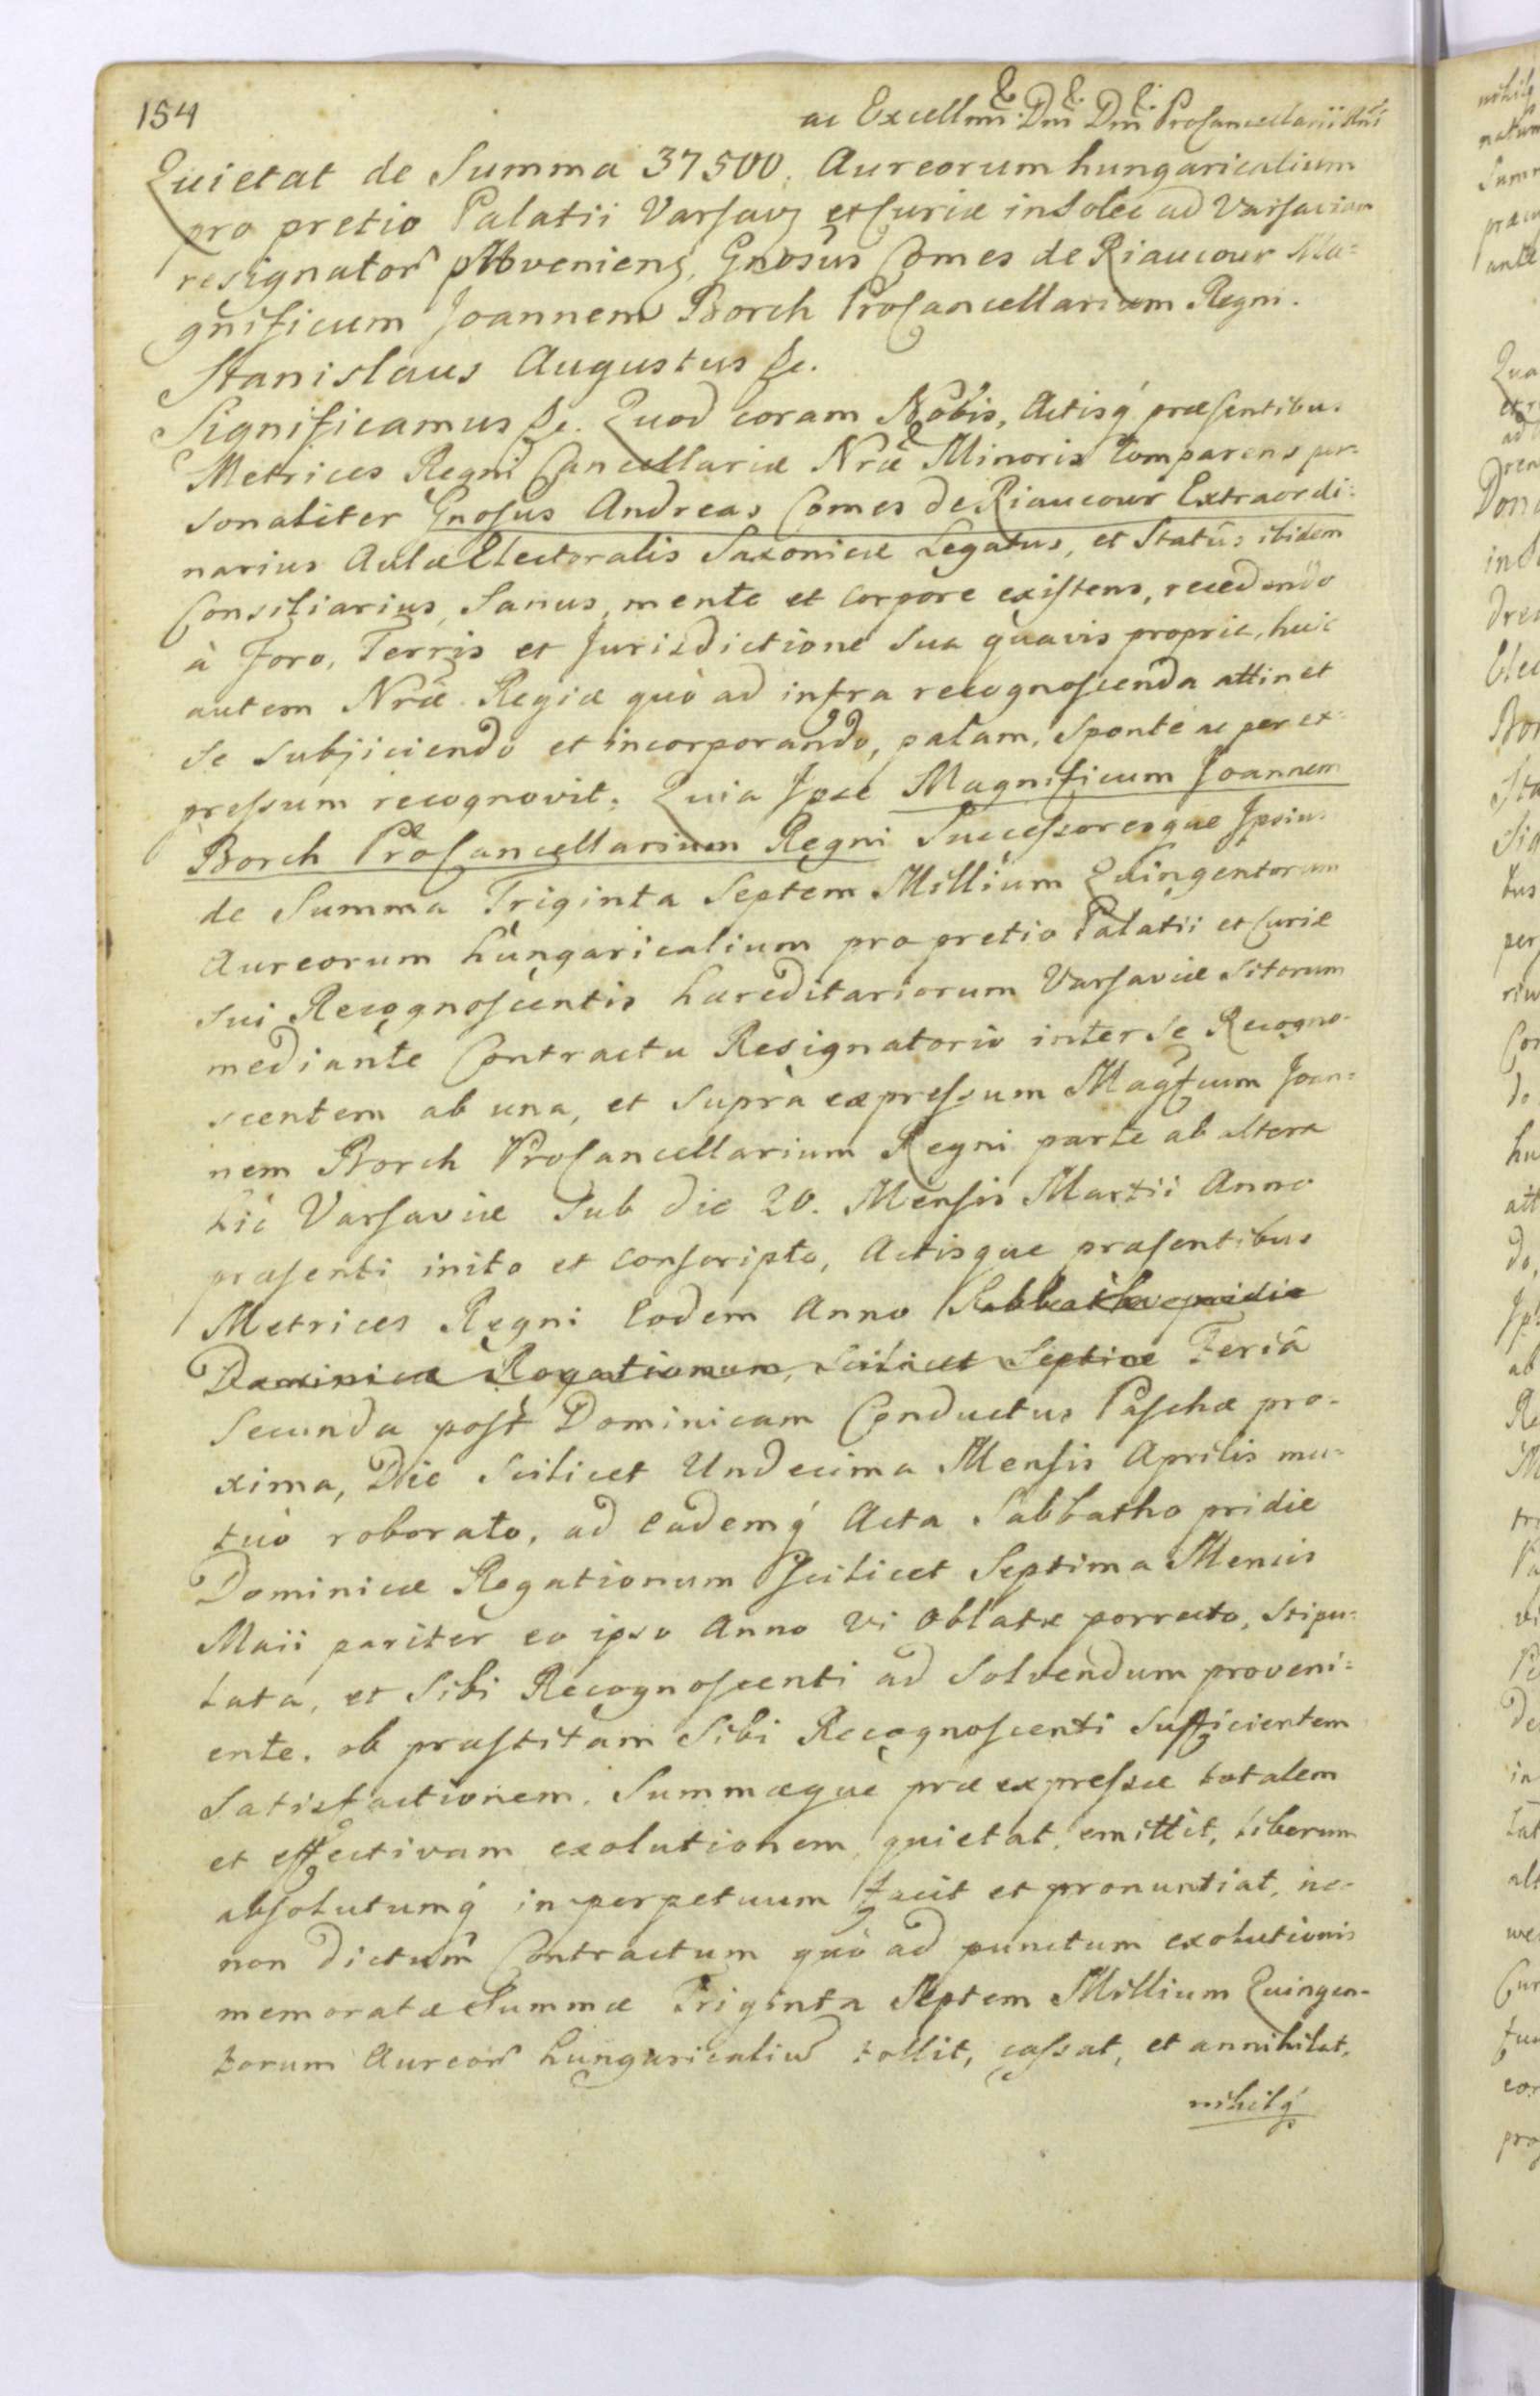 154
ac Excellmi Dni Dni ProCancellarii Rni
Quietat de Summa 37500. Aureorum hungaricalium
pro pretio Palatii Varsav et Curiæ in Solec ad Varsaviam
resignator proveniens, Gnosus Comes de Riaucour Ma=
gnificum Joannem Borch ProCancellarium Regni.
Stanislaus Augustus &c.
Significamus &c. Quod coram Nobis, Actisq́ præsentibus
Metrices Regni Cancellariæ Nræ Minoris Comparens per=
sonaliter Gnosus Andreas Comes de Riaucour Extraordi=
narius Aulæ Electoralis Saxonicæ Legatus, et Statûs ibidem
Consiliarius, Sanus, mente et Corpore existens, recedendo
à Foro, Terris et Jurisdictione Sua quavis propriâ, huic
autem Nræ Regiæ quò ad infra recognoscenda attinet
se subjiciendo et incorporando, palam, sponte ac per ex=
pressum recognovit; Quia Ipse Magnificum Joannem
Borch ProCancellarium Regni Successoresque Ipsius
de Summa Triginta Septem Millium Quingentorum
Aureorum hungaricalium pro pretio Palatii et Curiæ
sui Recognoscentis hæreditariorum Varsaviæ sitorum
mediante Contractu Resignatorio inter Se Recogno=
scentem ab una, et supra expressum Magcum Joan=
nem Borch ProCancellarium Regni parte ab altera
hic Varsaviæ Sub die 20. Mensis Martii Anno
præsenti inito et conscripto, Actisque præsentibus
Metrices Regni Eodem Anno Sabbatho pridie
Dominicæ Rogationum, scilicet Septima Feriâ
Secunda post Dominicam Conductus Paschæ pro=
xima, Die Scilicet Undecima Mensis Aprilis mu=
tuò roborato, ad Eademq́ Acta Sabbatho pridie
Dominicæ Rogationum Scilicet Septima Mensis
Maii pariter eo ipso Anno vi Oblatæ porrecto, stipu=
lata, et Sibi Recognoscenti ad Solvendum proveni=
ente, ob præstitam Sibi Recognoscenti Sufficientem
Satisfactionem, Summæque præexpressæ totalem
et effectivam exolutionem, quietat, emittit, liberum
absolutumq́ in perpetuum facit et pronuntiat, nec
non dictum Contractum quò ad punctum exolutionis
memoratæ Summæ Triginta Septem Millium Quingen=
torum Aureor hungaricaliu tollit, cassat, et annihilat,
nihilq́